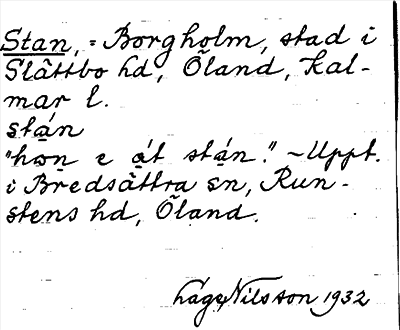 Stan, = Borgholm, stad i
Slättbo hd, Öland, Kal-
mar l.
stạ́n
"hən e ạ́t stạ́n." ~ Uppt.
i Bredsättra sn, Run-
stens hd, Öland.
Håge Nilsson 1932